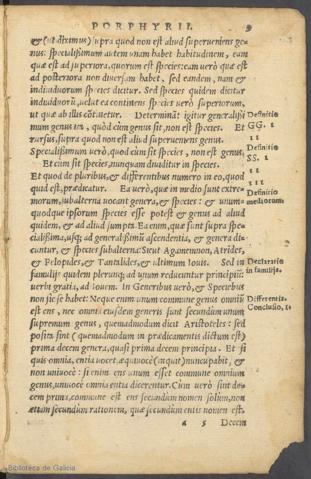 PORPHYRII. 9
& (ut diximus) supra quod non est aliud superueniens ge-
nus: specialissimum autem unam habet habitudinem, eam
quæ est ad superiora, quorum est species: eam uerò quæ est
ad posteriora non diuersam habet, sed eandem, nam &
indiuiduorum species dicitur. Sed species quidem dicitur
indiuiduorū, uelut ea continens species uerò superiorum,
ut quæ ab illis cōtinetur. Determināt igitur generalissi Definitio
mum genus ita, quòd cùm genus sit, non est species. Et GG. I
rursus, supra quod non est aliud superueniens genus. II
Specialissimum uerò, quod cùm sit species, non est genus. Definitio
Et cùm sit species, nunquam diuiditur in species. SS. I
Et quod de pluribus, & differentibus numero in eo, quod II
quid est, prædicatur. Ea uerò, quæ in medio sunt extre- III
morum, subalterna uocant genera, & species: & unum- Definitio
quodque ipsorum species esse potest & genus ad aliud mediorum
quidem, & ad aliud sumpta. Ea enim, quæ sunt supra spe-
cialissima, usq; ad generalissimū ascendentia, & genera di-
cuntur, & species subalterna: Sicut Agamemnon, Atrides,
& Pelopides, & Tantalides, & ultimum Iouis. Sed in Declaratio
familijs quidem plerunq; ad unum reducuntur principiū: in familijs.
uerbi gratia, ad Iouem. In Generibus uerò, & Speciebus
non sic se habet: Neque enim unum commune genus omniū Differentia.
est ens, nec omnia eiusdem generis sunt secundum unum Conclusio, I.
supremum genus, quemadmodum dicit Aristoteles: sed
posita sint (quemadmodum in prædicamentis dictum est)
prima decem genera, quasi prima decem principia. Et si
quis omnia, entia uocet, æquiuocè (inquit) nuncupabit, &
non uniuocè: si enim ens unum esset commune omnium
genus, uniuocè omnia entia dicerentur. Cùm uerò sint de-
cem prima, commune est ens secundum nomen solùm, non
etiam secundum rationem, quæ secundum entis nomen est.
a 5 Decem
Biblioteca de Galicia